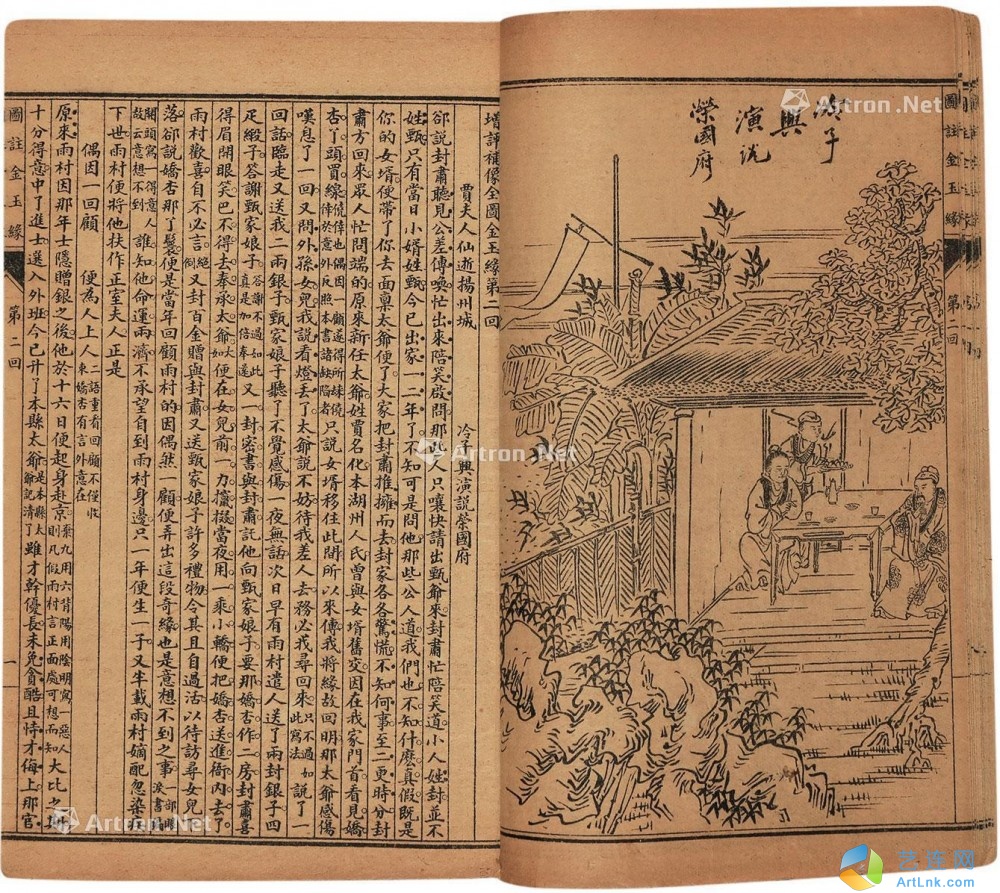 冷子
興
演說
榮國府
圖註金玉緣 第二回
增評補像全圖金玉緣第二回
賈夫人仙逝揚州城 冷子興演說榮國府
卻說封肅聽見公差傳喚忙出來陪笑啟問那些人只嚷快請出甄爺來封肅忙陪笑道小人姓封並不
姓甄只有當日小婿姓甄今已出家一二年了不知可是問他那些公人道我們也不知什麽真假既是
你的女婿便帶了你去面稟太爺便了大家把封肅推擁而去封家各各驚慌不知何事至二更時分封
肅方回來眾人忙問端的原來新任太爺姓賈名化本湖州人氏曾與女婿舊交因在我家門首看見嬌
杏了頭買線僥倖也偶因一顧遂得所僥倖於意外反照本書諸缺陷者只說女婿移住此間所以來傳我將緣故回明那太爺感傷
嘆息了一回又問外孫女兒我說看燈丟了太爺說不妨待我差人去務必我尋回來只不過如此寫法說了一
回話臨走又送我二兩銀子甄家娘子聽了不覺感傷一夜無話次日早有雨村遣人送了兩封銀子四
疋緞子答謝甄家娘子答謝不過如此又一封密書與封肅託他向甄家娘子要那嬌杏作二房封肅喜
得眉開眼笑巴不得去奉承太爺便在女兒前一力攛掇當夜用一乘小轎便把嬌杏送進衙內去了
雨村歡喜自不必言又封百金贈與封肅又送甄家娘子許多禮物令其且自過活以待訪尋女兒
落卻說嬌杏那丫鬟便是當年回顧雨村的因偶然一顧便弄出這段奇緣也是意想不到之事
開頭寫一得意人故云意想不到誰知他命運兩濟不承望自到雨村身邊只一年便生一子又半載雨村嫡配忽染
下世雨村便將他扶作正室夫人正是
偶因一回顧 便為人上人二語重看回顧不僅收束嬌杏有言外意在
原來雨村因那年士隱贈銀之後他於十六日便起身赴京大比之
十分得意中了進士選入外班今已升了本縣太爺雖才幹優長未免貪酷且恃才侮上那官
圖註金玉緣 第二回 一
Artron.Net
Artron.Net
Artron.Net
艺连网
ArtLnk.com